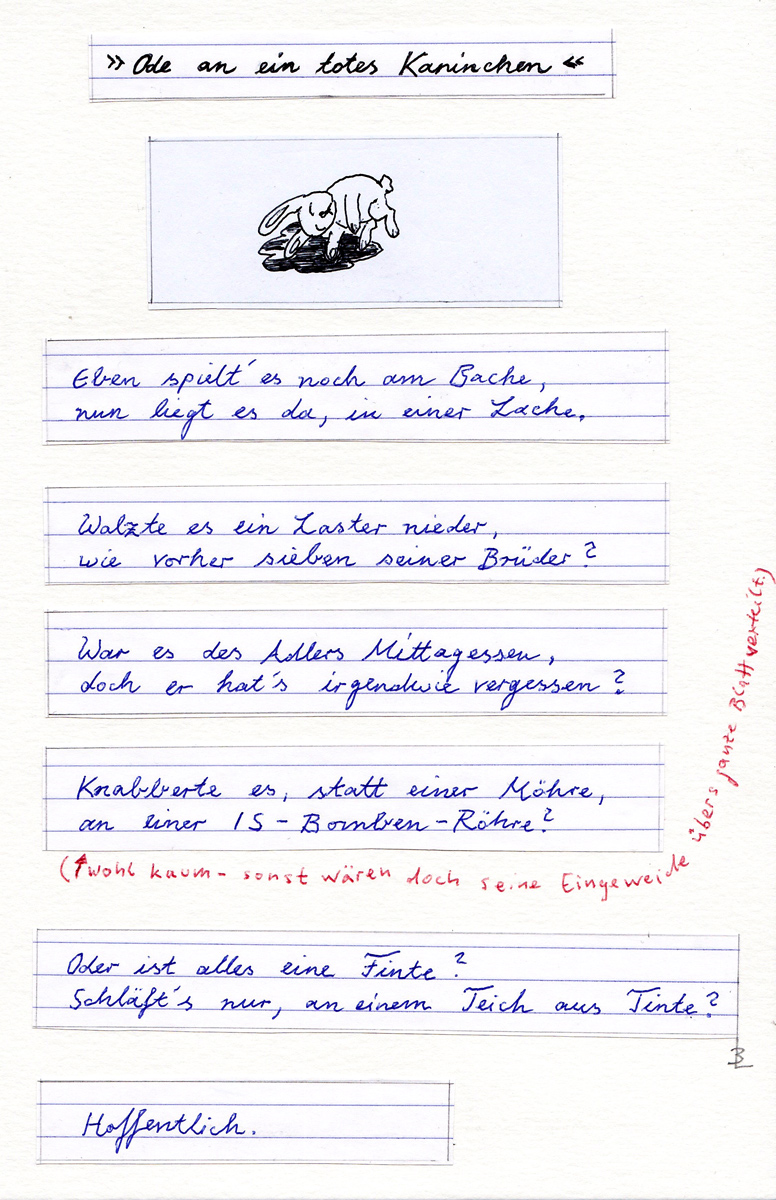 »Ode an ein totes Kaninchen«
Eben spielt´es noch am Bache,
nun liegt es da, in einer Lache.
Walzte es ein Laster nieder,
wie vorher sieben seiner Brüder?
War es des Adlers Mittagessen,
doch er hat´s irgendwie vergessen?
Knabberte es, statt einer Möhre,
an einer IS-Bomben-Röhre?
(↑wohl kaum - sonst wären doch seine Eingeweide übers ganze Blatt verteilt.)
Oder ist alles eine Finte?
Schläft´s nur, an einem Teich aus Tinte?
Hoffentlich.